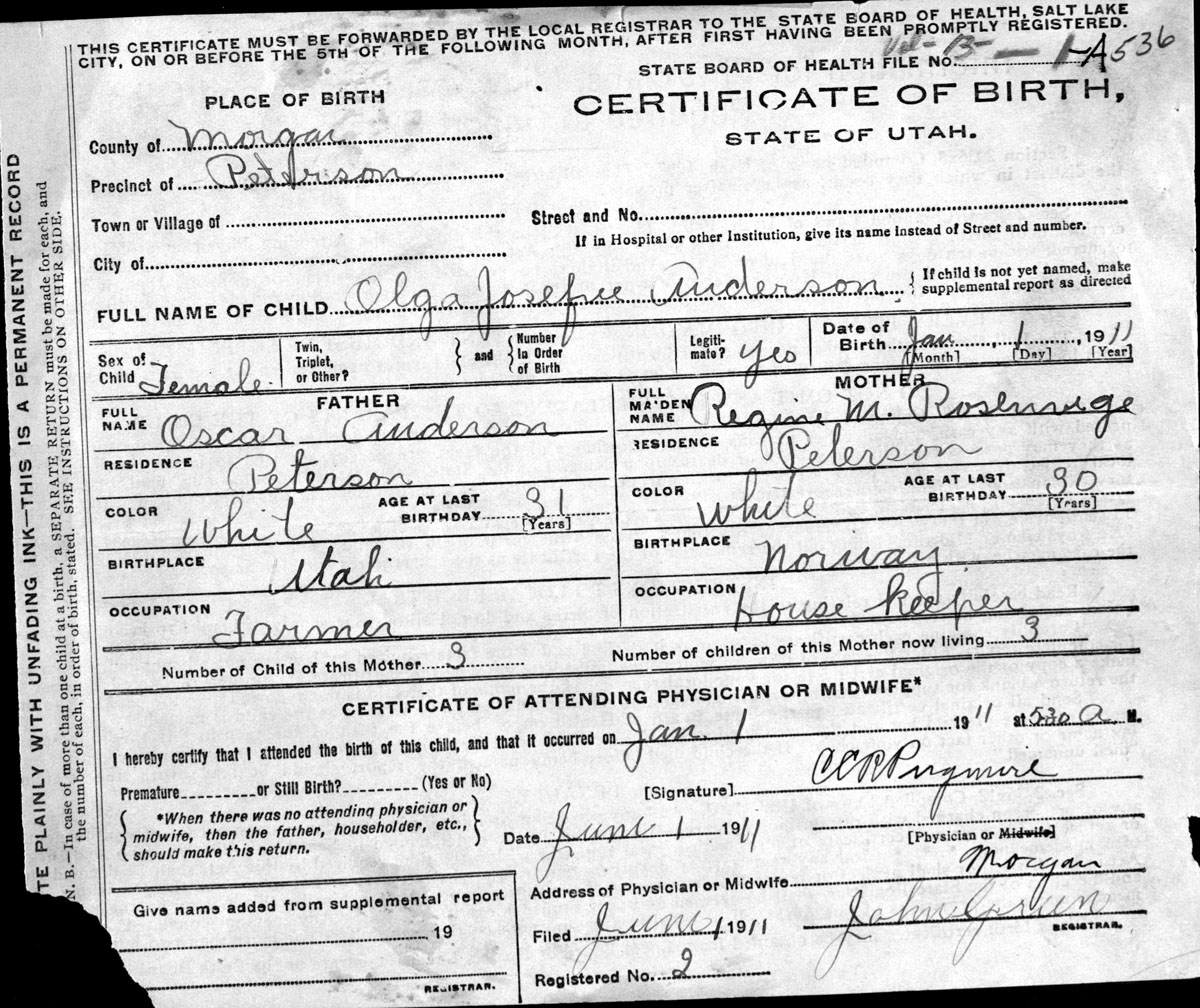 THIS CERTIFICATE MUST BE FORWARDED BY THE LOCAL REGISTRAR TO THE STATE BOARD OF HEALTH, SALT LAKE
CITY, ON OR BEFORE THE 5TH OF THE FOLLOWING MONTH, AFTER FIRST HAVING BEEN PROMPTLY REGISTERED.
STATE BOARD OF HEALTH FILE NO. 1-A536
PLACE OF BIRTH
CERTIFICATE OF BIRTH,
STATE OF UTAH.
County of Morgan
Precinct of Peterson
Town or Village of
Street and No.
If in Hospital or other Institution, give its name instead of Street and number.
City of
FULL NAME OF CHILD Olga Josefine Anderson { If child is not yet named, make
supplemental report as directed
Sex of Child Female
Twin, Triplet, or Other? } and { Number in Order of Birth
Legiti-mate? Yes
Date of Birth Jan 1, 1911
[Month] [Day] [Year]
FATHER
FULL NAME Oscar Anderson
RESIDENCE Peterson
COLOR White AGE AT LAST BIRTHDAY 31
[Years]
BIRTHPLACE Utah
OCCUPATION Farmer
MOTHER
FULL MAIDEN NAME Regine M.
RESIDENCE Peterson
COLOR White AGE AT LAST BIRTHDAY 30
[Years]
BIRTHPLACE Norway
OCCUPATION House Keeper
Number of Child of this Mother 3
Number of children of this Mother now living 3
CERTIFICATE OF ATTENDING PHYSICIAN OR MIDWIFE*
I hereby certify that I attended the birth of this child, and that it occurred on Jan. 1 1911 at 530 A M.
Premature or Still Birth? (Yes or No)
[Signature]
{ *When there was no attending physician or
midwife, then the father, householder, etc.,
should make this return. }
Date June 1 1911
[Physician or Midwife]
Address of Physician or Midwife Morgan
Give name added from supplemental report
19
REGISTRAR.
Filed June 1 1911 John Green
REGISTRAR.
Registered No. 2
TE PLAINLY WITH UNFADING INK—THIS IS A PERMANENT RECORD
N. B.—In case of more than one child at a birth, a SEPARATE RETURN must be made for each, and
the number of each, in order of birth, stated. SEE INSTRUCTIONS ON OTHER SIDE.